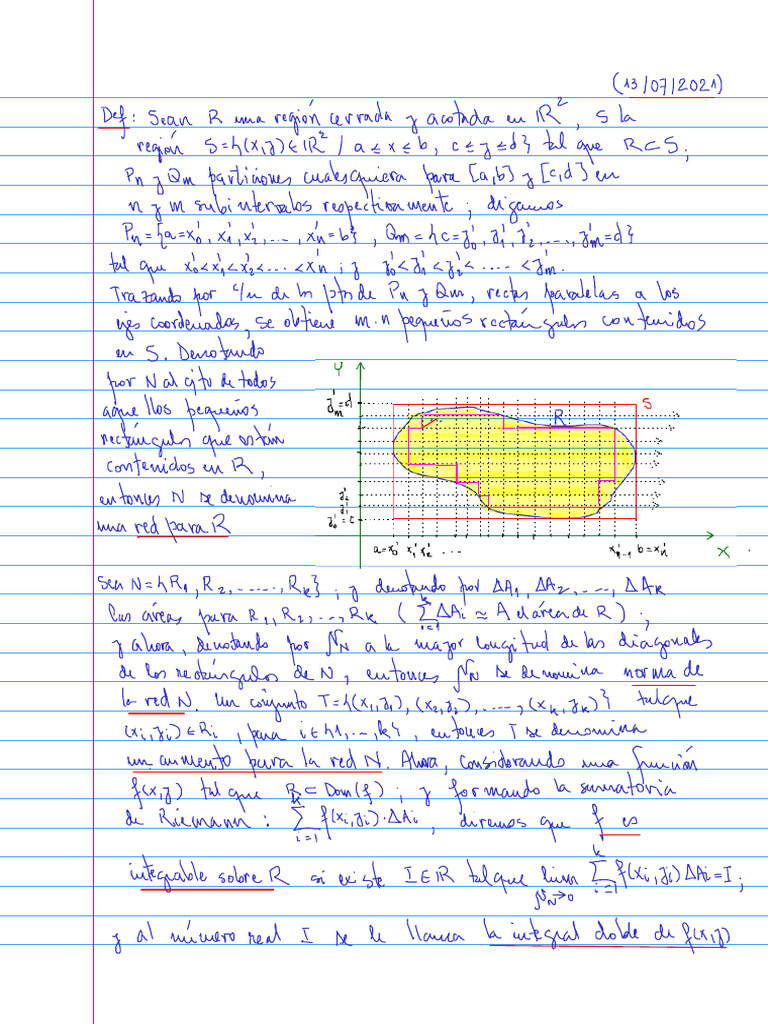 (13/07/2021)
Def: Sean R una región cerrada y acotada en ℝ², S la
región S={(x,y)∈ℝ² / a≤x≤b, c≤y≤d} tal que R⊂S;
Pn y Qm particiones cualesquiera para [a,b] y [c,d] en
n y m subintervalos respectivamente; digamos
Pn={a=x'₀, x'₁, x'₂, ..., x'n=b}, Qm={c=y'₀, y'₁, y'₂, ..., y'm=d}
tal que x'₀<x'₁<x'₂<...<x'n; y y'₀<y'₁<y'₂<.....<y'm.
Trazando por c/u de los ptos de Pn y Qm, rectas paralelas a los
ejes coordenados, se obtiene m.n pequeños rectángulos contenidos
en S. Denotando
por N al cjto de todos
aquellos pequeños
rectángulos que están
contenidos en R,
entonces N se denomina
una red para R
Y
y'm=d
S
R
y'₂
y'₁
y'₀=c
a=x'₀ x'₁ x'₂ ... x'n-1 b=x'n
X
Sea N={R₁, R₂, ....., Rk}; y denotando por ΔA₁, ΔA₂, ..., ΔAk
las áreas para R₁, R₂, ..., Rk (∑ᵢ₌₁ᵏ ΔAi ≃ A el área de R);
y ahora, denotando por 𝒩N a la mayor longitud de las diagonales
de los rectángulos de N, entonces 𝒩N se denomina norma de
la red N. Un conjunto T={(x₁,y₁), (x₂,y₂), ....., (xk,yk)} tal que
(xi,yi)∈Ri, para i∈{1,...,k}, entonces T se denomina
un aumento para la red N. Ahora, considerando una función
f(x,y) tal que R⊂Dom(f); y formando la sumatoria
de Riemann: ∑ᵢ₌₁ᵏ f(xi,yi)·ΔAi, diremos que f es
integrable sobre R si existe I∈ℝ tal que lim 𝒩N→0 ∑ᵢ₌₁ᵏ f(xi,yi)ΔAi=I;
y al número real I se le llama la integral doble de f(x,y)